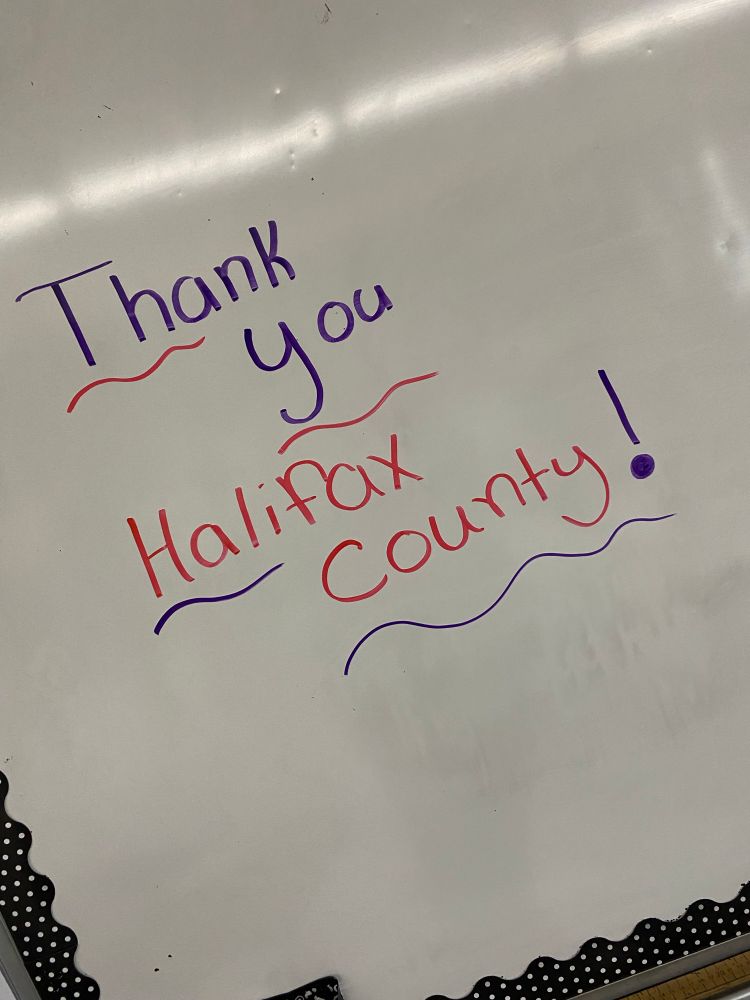 Thank
you
Halifax
County!